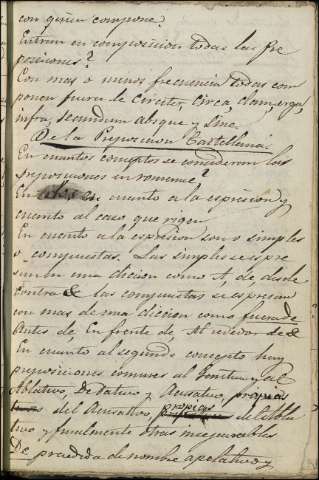 con quien compone?
Entran en composicion todas las Pre
posiciones?
Con mas o menos frecuencia todas com
ponen fuera de Circiter, Circa, Clam, erga,
infra, secundum absque y Sine.
De la Preposicion Castellana.
En cuantos conceptos se consideran las
preposiciones en romance?
En cuanto a la espresion, y
cuanto al caso, que rigen
En cuanto a la espresion son o simples
o compuestas. Las simples se espre
san con una dicion como A, de desde
contra & las compuestas se espresan
con mas de una dicion como fuera de
Antes de, En frente de, Al rededor de &
En cuanto al segundo concepto hay
preposiciones comunes al Genitivo y al
Ablativo, De Dativo y Acusativo, propias
del Acusativo, propias del Abla
tivo y finalmente otras inseparables
De precedida de nombre apelativo, y